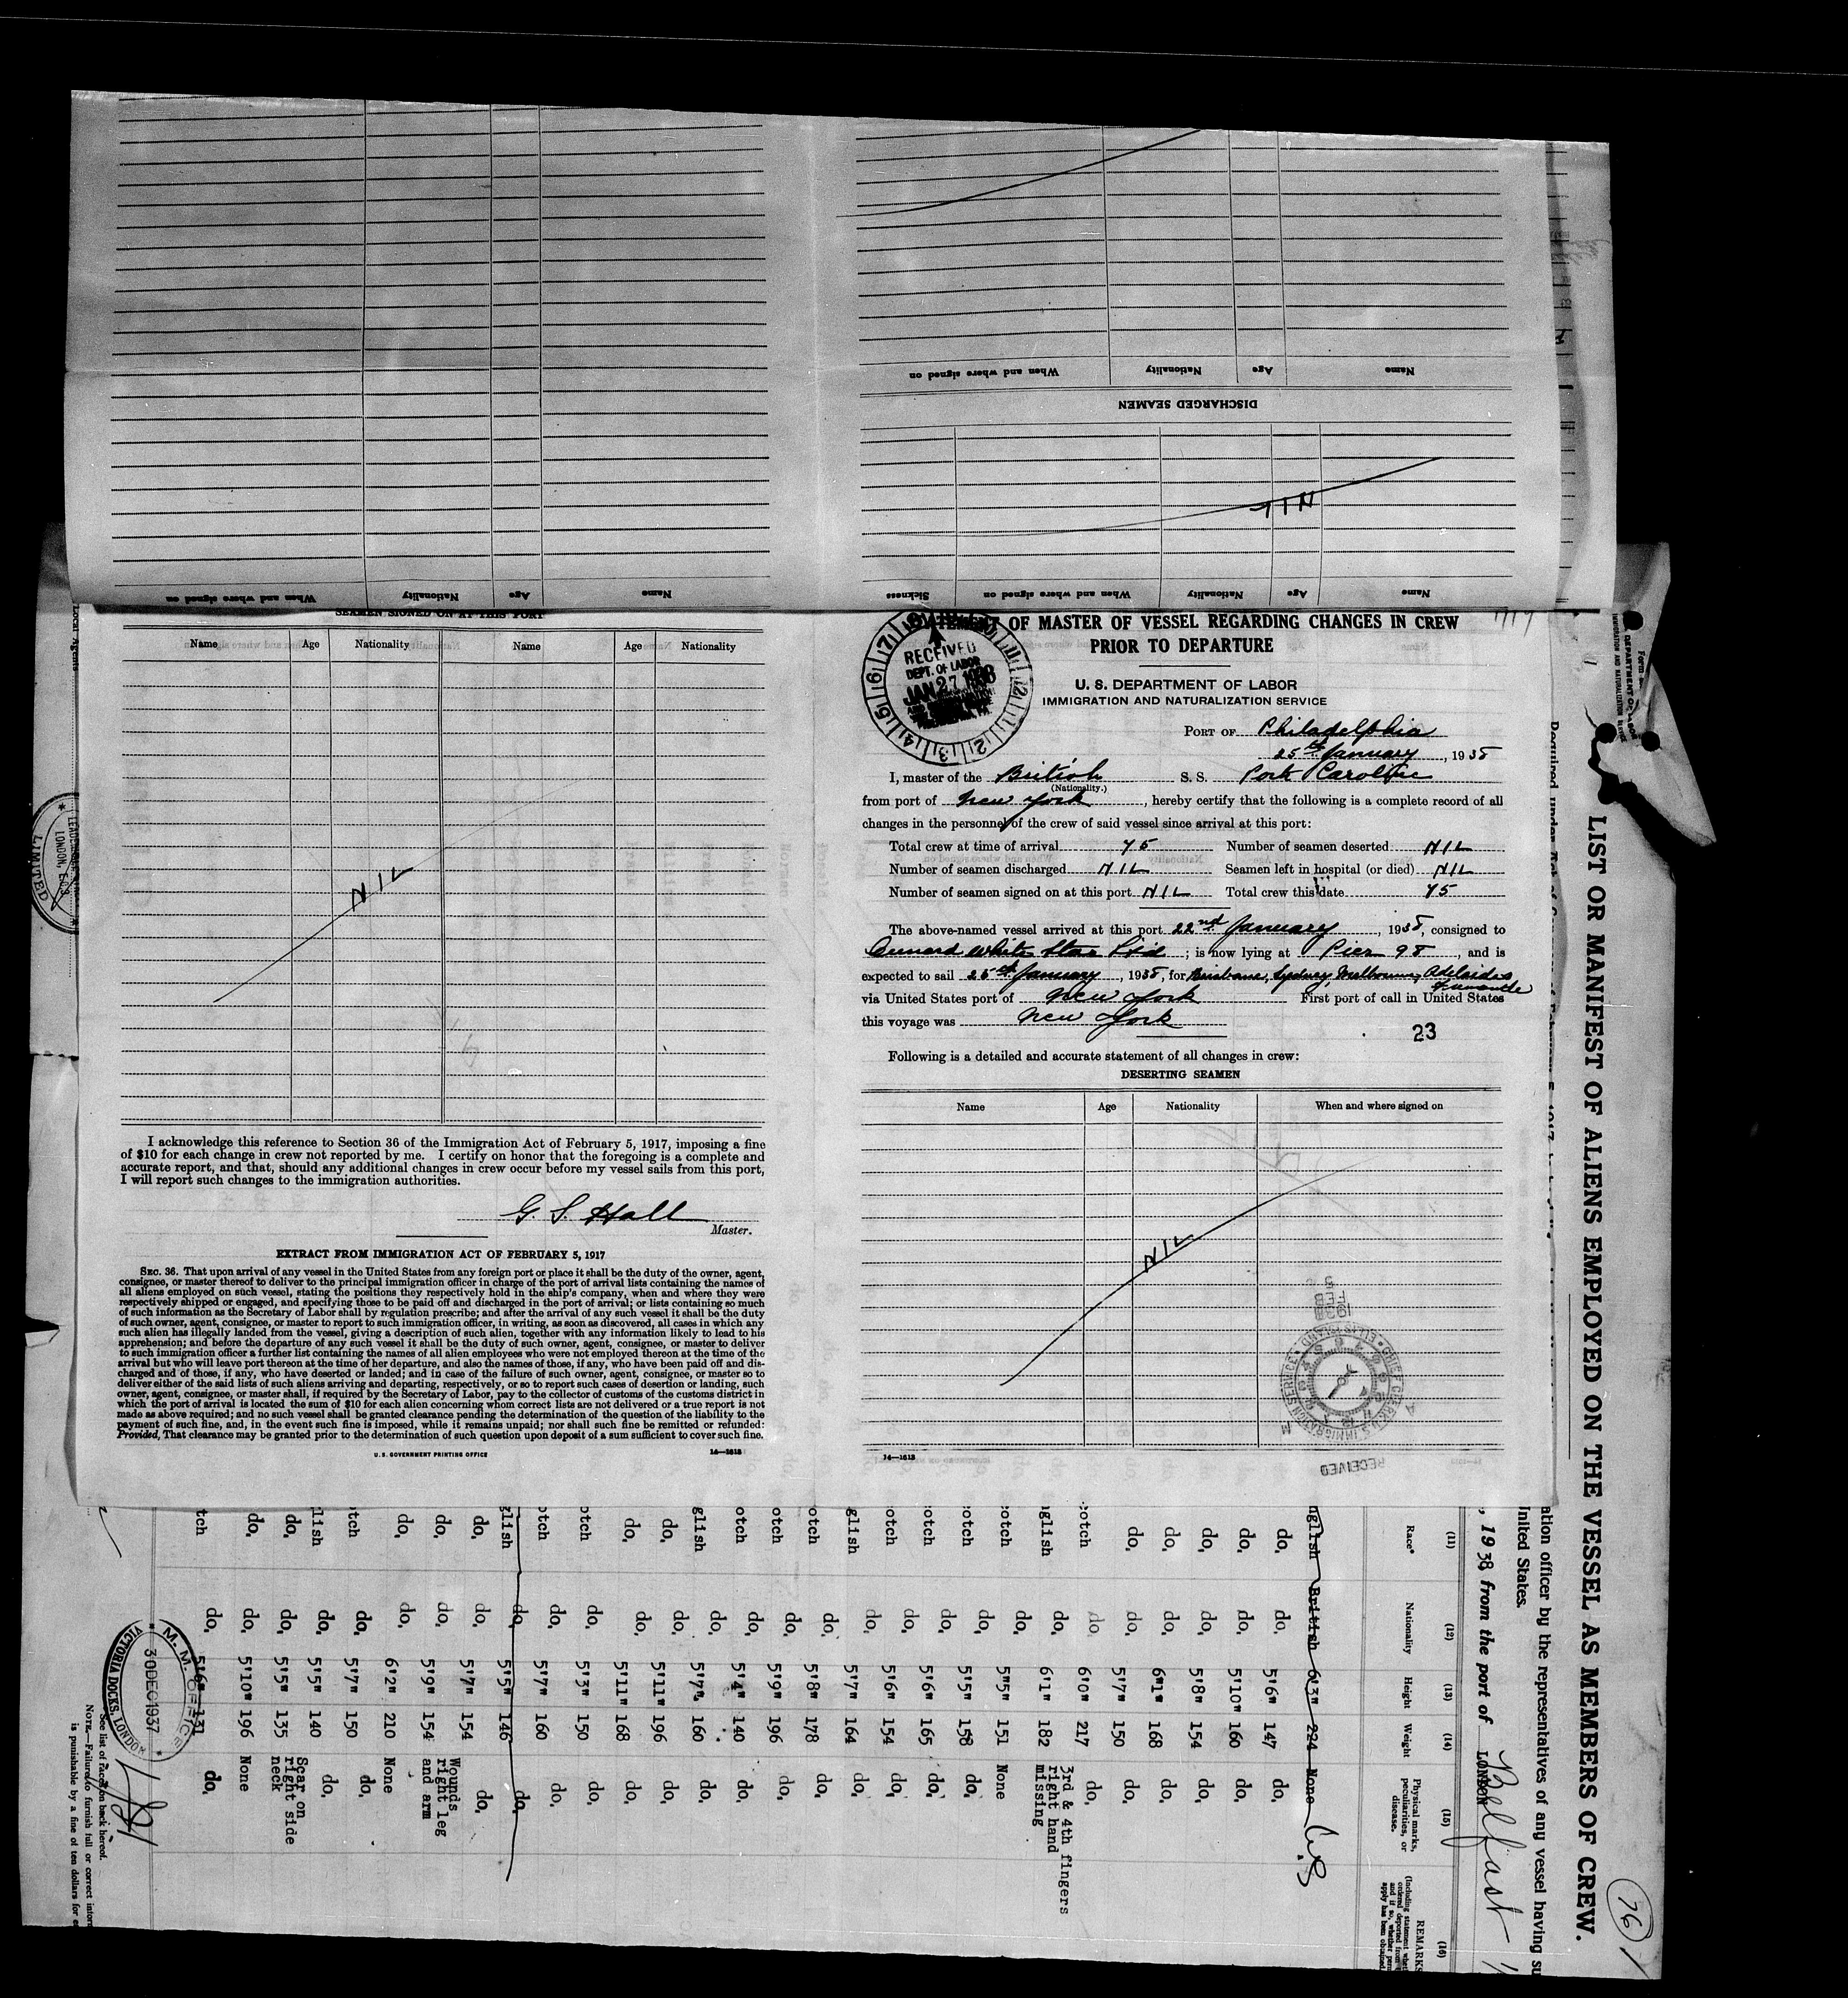 When and where signed on Nationality Age Name
DISCHARGED SEAMEN
NIL
When and where signed on Nationality Age Name
Sickness When and where signed on Nationality Age Name
SEAMEN SIGNED ON AT THIS PORT
Name Age Nationality Name Age Nationality
NIL
I acknowledge this reference to Section 36 of the Immigration Act of February 5, 1917, imposing a fine
of $10 for each change in crew not reported by me. I certify on honor that the foregoing is a complete and
accurate report, and that, should any additional changes in crew occur before my vessel sails from this port,
I will report such changes to the immigration authorities.
G. S. Hall
Master.
EXTRACT FROM IMMIGRATION ACT OF FEBRUARY 5, 1917
SEC. 36. That upon arrival of any vessel in the United States from any foreign port or place it shall be the duty of the owner, agent,
consignee, or master thereof to deliver to the principal immigration officer in charge of the port of arrival lists containing the names of
all aliens employed on such vessel, stating the positions they respectively hold in the ship's company, when and where they were
respectively shipped or engaged, and specifying those to be paid off and discharged in the port of arrival; or lists containing so much
of such information as the Secretary of Labor shall by regulation prescribe; and after the arrival of any such vessel it shall be the duty
of such owner, agent, consignee, or master to report to such immigration officer, in writing, as soon as discovered, all cases in which any
such alien has illegally landed from the vessel, giving a description of such alien, together with any information likely to lead to his
apprehension; and before the departure of any such vessel it shall be the duty of such owner, agent, consignee, or master to deliver
to such immigration officer a further list containing the names of all alien employees who were not employed thereon at the time of the
arrival but who will leave port thereon at the time of her departure, and also the names of those, if any, who have been paid off and dis-
charged and of those, if any, who have deserted or landed; and in case of the failure of such owner, agent, consignee, or master so to
deliver either of the said lists of such aliens arriving and departing, respectively, or so to report such cases of desertion or landing, such
owner, agent, consignee, or master shall, if required by the Secretary of Labor, pay to the collector of customs of the customs district in
which the port of arrival is located the sum of $10 for each alien concerning whom correct lists are not delivered or a true report is not
made as above required; and no such vessel shall be granted clearance pending the determination of the question of the liability to the
payment of such fine, and, in the event such fine is imposed, while it remains unpaid; nor shall such fine be remitted or refunded:
Provided, That clearance may be granted prior to the determination of such question upon deposit of a sum sufficient to cover such fine.
U. S. GOVERNMENT PRINTING OFFICE 14—1613
OF MASTER OF VESSEL REGARDING CHANGES IN CREW
PRIOR TO DEPARTURE
RECEIVED
DEPT. OF LABOR
JAN 27 1938
U. S. DEPARTMENT OF LABOR
IMMIGRATION AND NATURALIZATION SERVICE
PORT OF Philadelphia
25th January, 1938
I, master of the British S. S. Port Caroline
(Nationality.)
from port of New York, hereby certify that the following is a complete record of all
changes in the personnel of the crew of said vessel since arrival at this port:
Total crew at time of arrival 75 Number of seamen deserted NIL
Number of seamen discharged NIL Seamen left in hospital (or died) NIL
Number of seamen signed on at this port NIL Total crew this date 75
The above-named vessel arrived at this port 22nd January, 1938, consigned to
Cunard White Star Ltd; is now lying at Pier 98, and is
expected to sail 25th January, 1938, for Brisbane, Sydney, Melbourne, Adelaide
Fremantle
via United States port of New York First port of call in United States
this voyage was New York
23
Following is a detailed and accurate statement of all changes in crew:
DESERTING SEAMEN
Name Age Nationality When and where signed on
NIL
RECEIVED
14—1613
LIST OR MANIFEST OF ALIENS EMPLOYED ON THE VESSEL AS MEMBERS OF CREW.
76
ation officer by the representatives of any vessel having su
United States.
, 1938 from the port of LONDON Belfast
(11) (12) (13) (14) (15) (16)
Race* Nationality Height Weight Physical marks, peculiarities, or disease. REMARKS
nglish British 6'3" 224 None
do, do, 5'6" 147 do,
do, do, 5'10" 160 do,
do, do, 5'8" 154 do,
do, do, 6'1" 168 do,
do, do, 5'7" 150 do,
cotch do, 6'0" 217 do,
nglish do, 6'1" 182 3rd & 4th fingers right hand missing
otch do, 5'5" 151 None
otch do, 5'5" 158 do,
otch do, 5'6" 165 do,
otch do, 5'6" 154 do,
glish do, 5'7" 164 do,
otch do, 5'8" 178 do,
otch do, 5'9" 196 do,
otch do, 5'4" 140 do,
glish do, 5'7" 160 do,
do, do, 5'11" 196 do,
do, do, 5'11" 168 do,
otch do, 5'3" 150 do,
otch do, 5'7" 160 do,
glish do, 5'5" 146 do,
do, do, 5'7" 154 do,
do, do, 5'9" 154 Wounds right leg and arm
do, do, 6'2" 210 None
tch do, 5'7" 150 do,
lish do, 5'5" 140 do,
do, do, 5'5" 135 Scar on right side neck
do, do, 5'10" 196 None
tch do, 5'6" 131 do,
M. M. OFFICE
30 DEC 1937
VICTORIA DOCKS, LONDON
See list of races on back hereof.
NOTE.—Failure to furnish full or correct inform
is punishable by a fine of ten dollars for e
Local Agents
LONDON, E.C.3
LIMITED